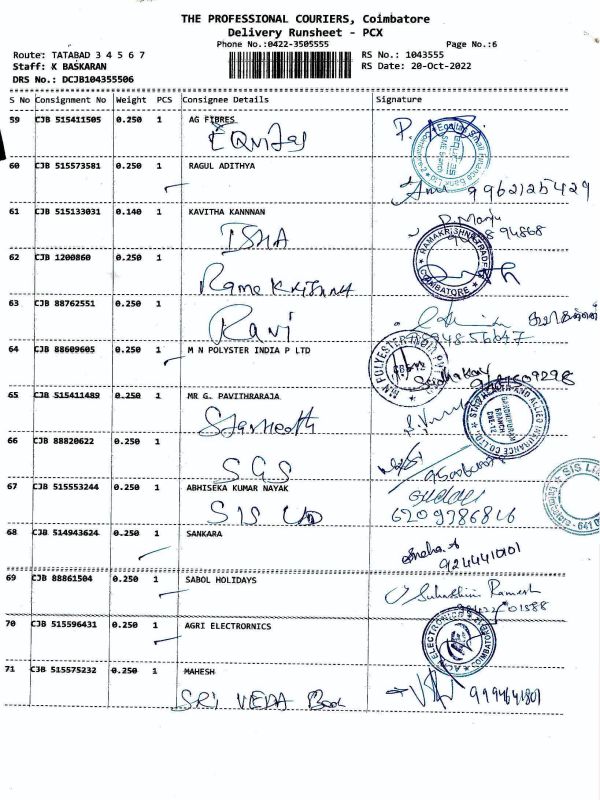 THE PROFESSIONAL COURIERS, Coimbatore
Delivery Runsheet - PCX
Phone No.:0422-3505555
Page No.:6
Route: TATABAD 3 4 5 6 7
RS No.: 1043555
Staff: K BASKARAN
RS Date: 20-Oct-2022
DRS No.: DCJB104355506
S No Consignment No Weight PCS Consignee Details Signature
59 CJB 515411505 0.250 1 AG FIBRES
EQuitas
60 CJB 515573581 0.250 1 RAGUL ADITHYA
9962125429
61 CJB 515133031 0.140 1 KAVITHA KANNNAN
ISHA
RAMAKRISHNA TRADERS
COIMBATORE
62 CJB 1200860 0.250 1
Rama Krishna
63 CJB 88762551 0.250 1
Ravi
64 CJB 88609605 0.250 1 M N POLYSTER INDIA P LTD
65 CJB 515411489 0.250 1 MR G. PAVITHRARAJA
Starhealth
STAR HEALTH AND ALLIED INSURANCE CO. LTD.
GANDHIPURAM
BRANCH
CBE-12
66 CJB 88820622 0.250 1
SGS
67 CJB 515553244 0.250 1 ABHISEKA KUMAR NAYAK
SIS Ltd
6209786816
68 CJB 514943624 0.250 1 SANKARA
Sneha.A
9244410101
69 CJB 88861504 0.250 1 SABOL HOLIDAYS
Suhashini Ramesh
70 CJB 515596431 0.250 1 AGRI ELECTRORNICS
COIMBATORE
71 CJB 515575232 0.250 1 MAHESH
SRI VEDA Book
9994641801